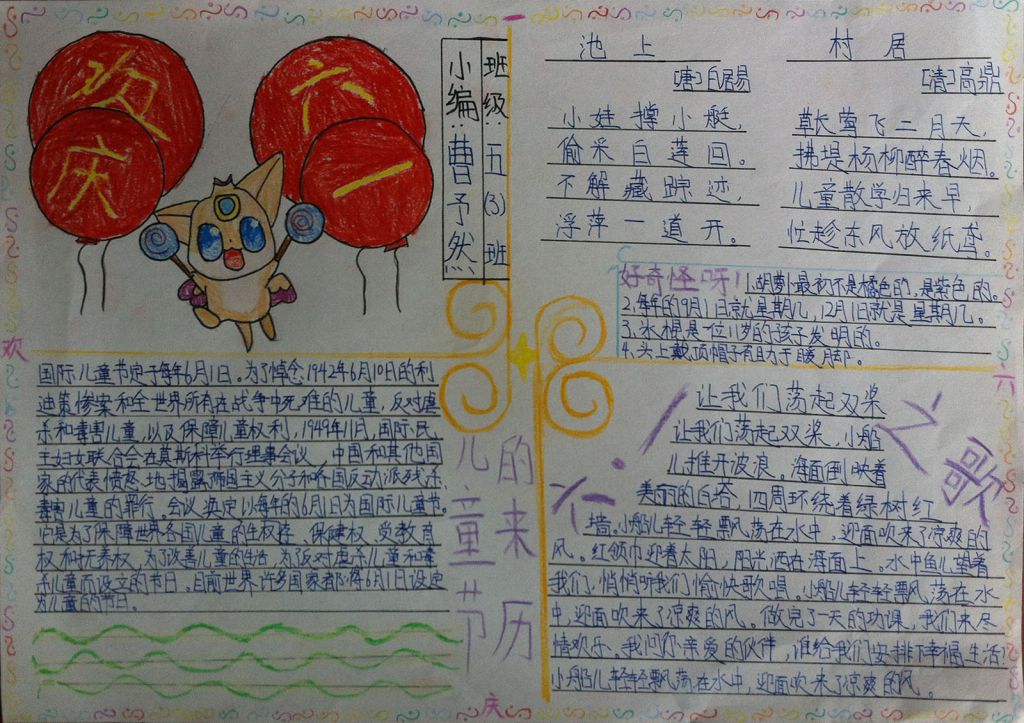 欢
庆
六
一
班级:五(3)班
小编:曹予然
池上
[唐]白居易
小娃撑小艇,
偷采白莲回。
不解藏踪迹,
浮萍一道开。
村居
[清]高鼎
草长莺飞二月天,
拂堤杨柳醉春烟。
儿童散学归来早,
忙趁东风放纸鸢。
好奇怪呀!
1.胡萝卜最初不是橘色的,是紫色的。
2.每年的9月1日就星期几,12月1日就是星期几。
3.冰棍是一位11岁的孩子发明的。
4.头上戴顶帽子有助于暖脚。
国际儿童节定于每年6月1日。为了悼念1942年6月10日的利
迪策惨案和全世界所有在战争中死难的儿童,反对虐
杀和毒害儿童,以及保障儿童权利,1949年11月,国际民
主妇女联合会在莫斯科举行理事会议,中国和其他国
家的代表愤怒地揭露了帝国主义分子和各国反动派残杀、
毒害儿童的罪行。会议决定以每年的6月1日为国际儿童节。
它是为了保障世界各国儿童的生存权、保健权、受教育
权和抚养权,为了改善儿童的生活,为了反对虐杀儿童和毒
杀儿童而设立的节日。目前世界许多国家都将6月1日设定
为儿童的节日。
儿童节
的来历
六·一之歌
让我们荡起双桨
让我们荡起双桨,小船
儿推开波浪。海面倒映着
美丽的白塔,四周环绕着绿树红
墙。小船儿轻轻飘荡在水中,迎面吹来了凉爽的
风。红领巾迎着太阳,阳光洒在海面上。水中鱼儿望着
我们,悄悄听我们愉快歌唱。小船儿轻轻飘荡在水
中,迎面吹来了凉爽的风。做完了一天的功课,我们来尽
情欢乐。我问你亲爱的伙伴,谁给我们安排下幸福生活?
小船儿轻轻飘荡在水中,迎面吹来了凉爽的风。
欢
庆
六
一